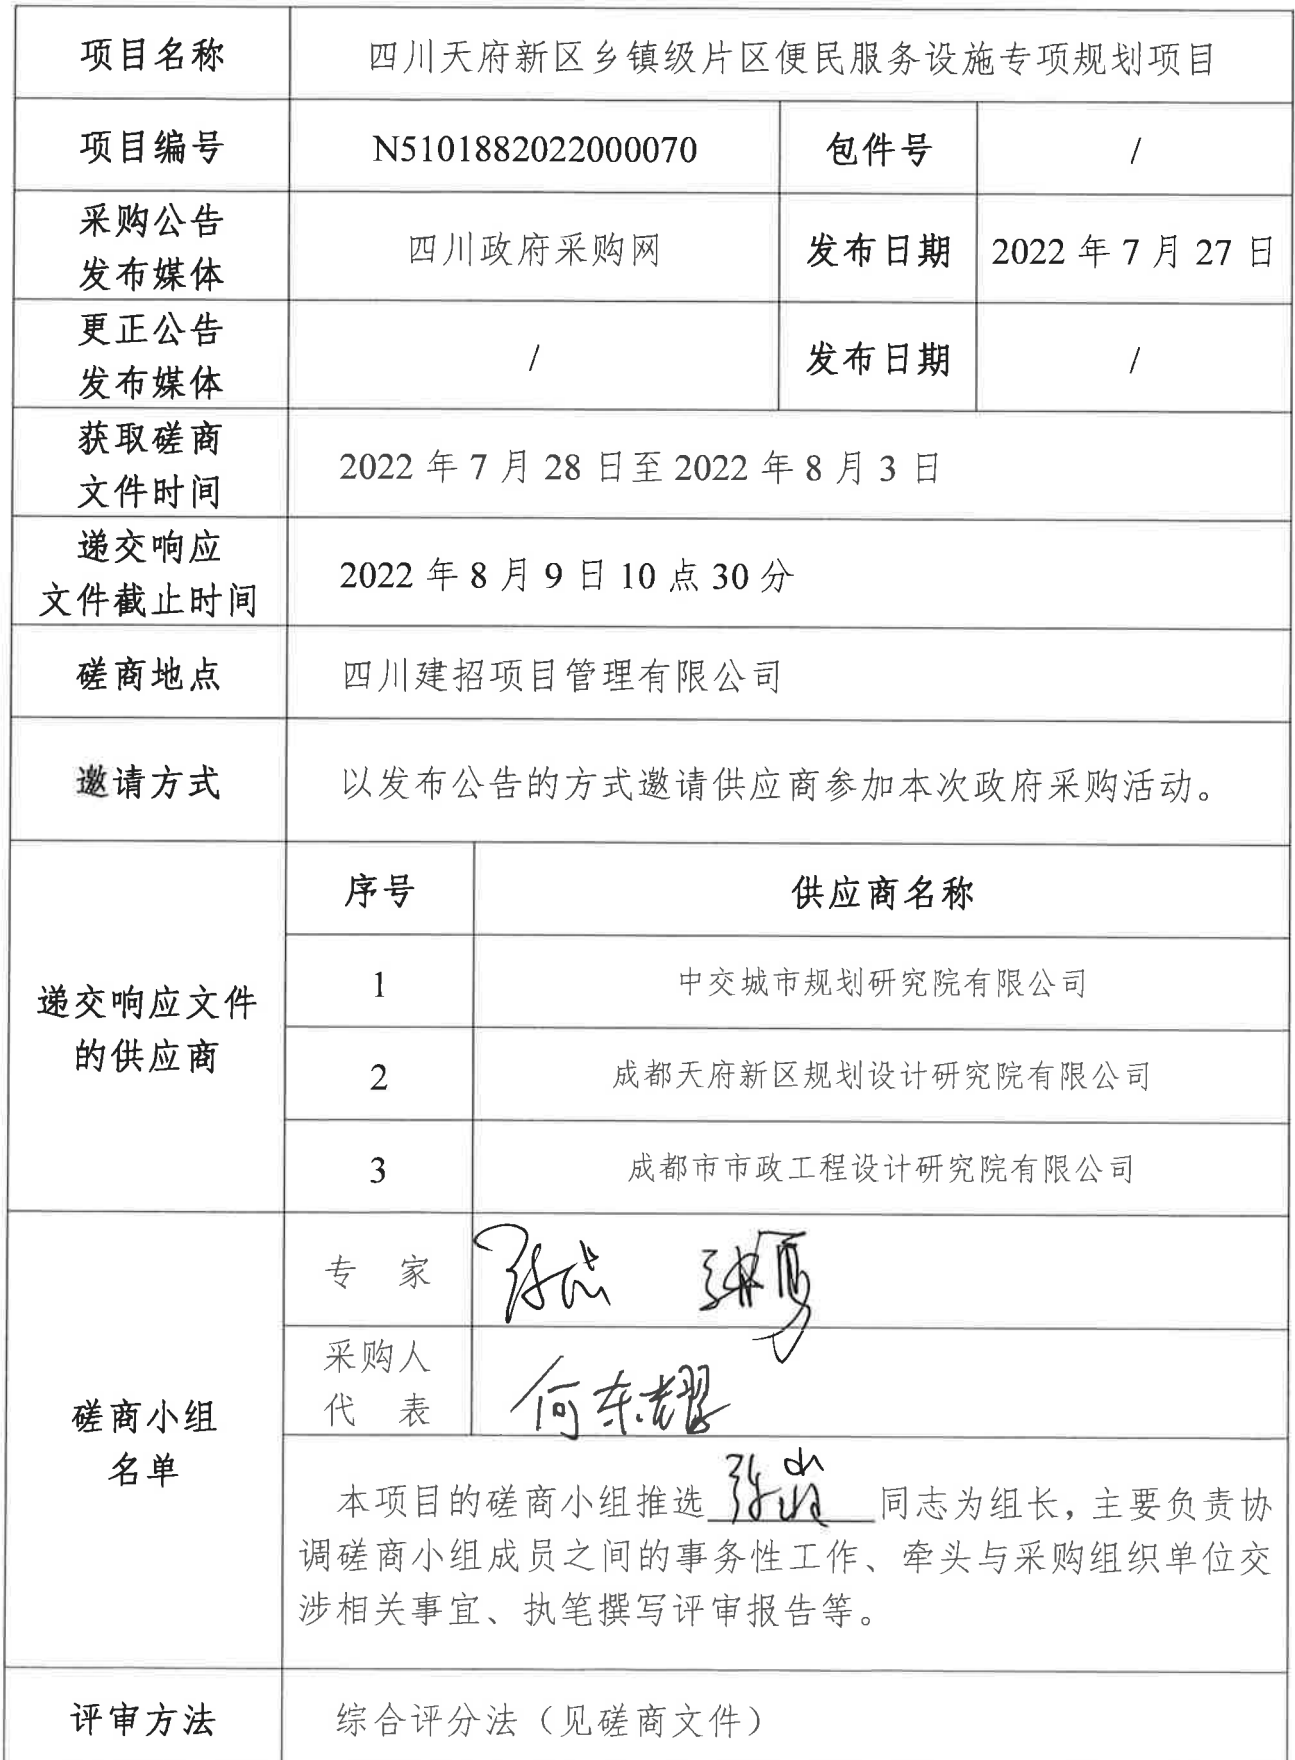 项目名称 四川天府新区乡镇级片区便民服务设施专项规划项目
项目编号 N5101882022000070 包件号 /
采购公告
发布媒体 四川政府采购网 发布日期 2022 年 7 月 27 日
更正公告
发布媒体 / 发布日期 /
获取磋商
文件时间 2022 年 7 月 28 日至 2022 年 8 月 3 日
递交响应
文件截止时间 2022 年 8 月 9 日 10 点 30 分
磋商地点 四川建招项目管理有限公司
邀请方式 以发布公告的方式邀请供应商参加本次政府采购活动。
递交响应文件
的供应商
序号 供应商名称
1 中交城市规划研究院有限公司
2 成都天府新区规划设计研究院有限公司
3 成都市市政工程设计研究院有限公司
磋商小组
名单
专 家
采购人
代 表 何东耀
本项目的磋商小组推选 同志为组长，主要负责协
调磋商小组成员之间的事务性工作、牵头与采购组织单位交
涉相关事宜、执笔撰写评审报告等。
评审方法 综合评分法（见磋商文件）